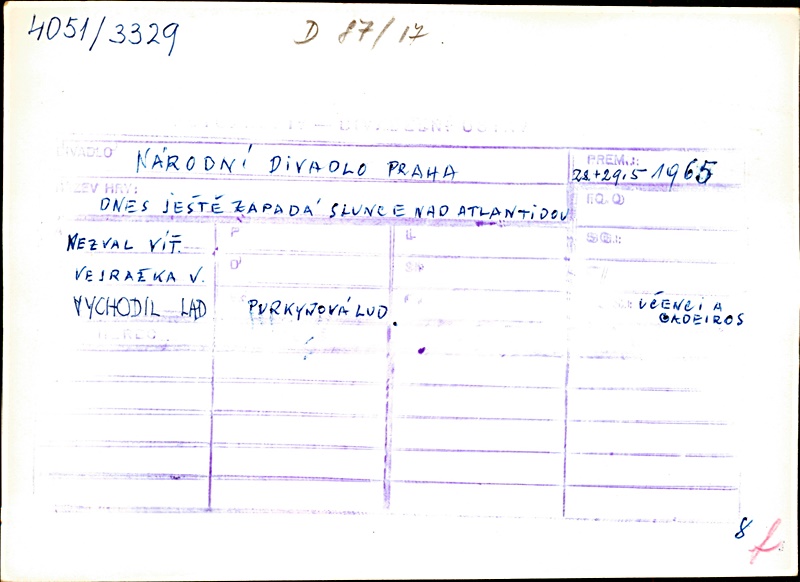 4051/3329 D 87/17.
DIVADLO NÁRODNÍ DIVADLO PRAHA PREM.:
22+29.5 1965
HRY:
DNES JEŠTĚ ZAPADÁ SLUNCE NAD ATLANTIDOU
NEZVAL VÍT.
VEJRAŽKA V.
VYCHODIL LAD PURKYŇOVÁ LUD. UČENCI A
GADEIROS
8